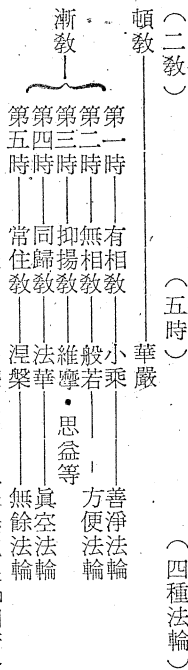 （二教）　（五時）　（四種法輪）
頓教　華嚴
漸教
第一時　有相教　小乘　善淨法輪
第二時　無相教　般若　方便法輪
第三時　抑揚教　維摩・思益等
第四時　同歸教　法華　眞空法輪
第五時　常住教　涅槃　無餘法輪